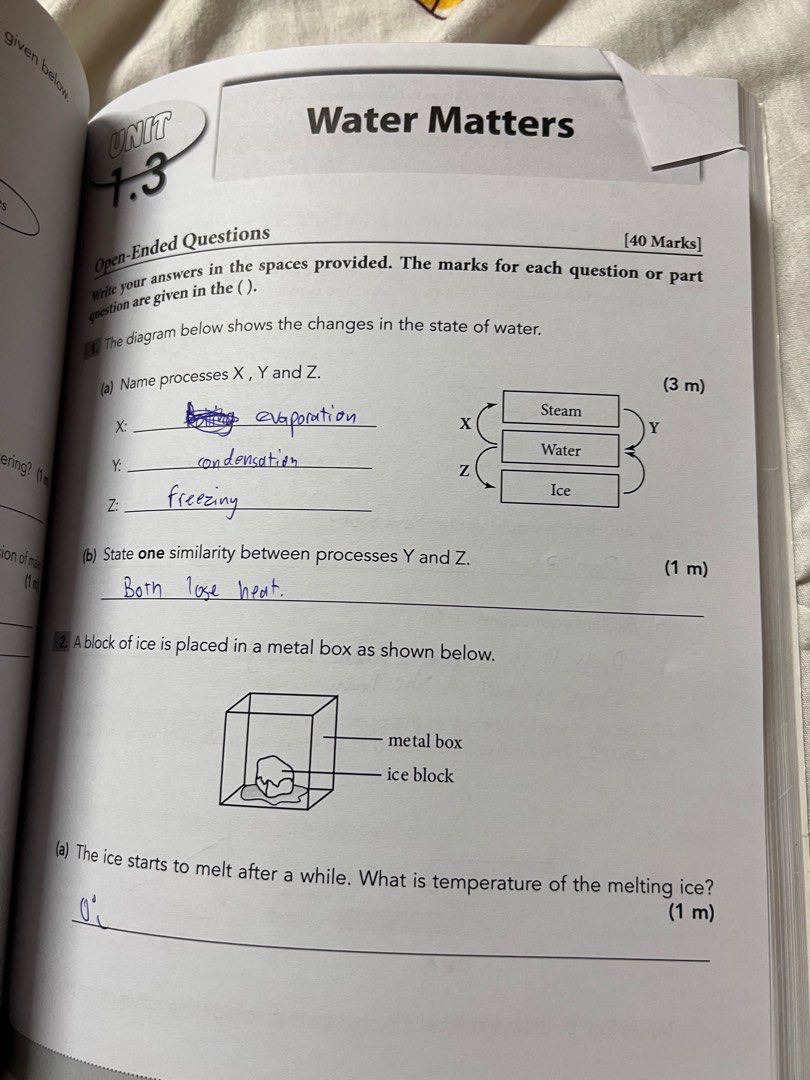 given below.
UNIT
1.3
Water Matters
Open-Ended Questions
[40 Marks]
Write your answers in the spaces provided. The marks for each question or part
question are given in the ( ).
1. The diagram below shows the changes in the state of water.
(a) Name processes X , Y and Z.
(3 m)
X: evaporation
Y: condensation
Z: freezing
X
Steam
Y
Water
Z
Ice
(b) State one similarity between processes Y and Z.
(1 m)
Both lose heat.
2. A block of ice is placed in a metal box as shown below.
metal box
ice block
(a) The ice starts to melt after a while. What is temperature of the melting ice?
(1 m)